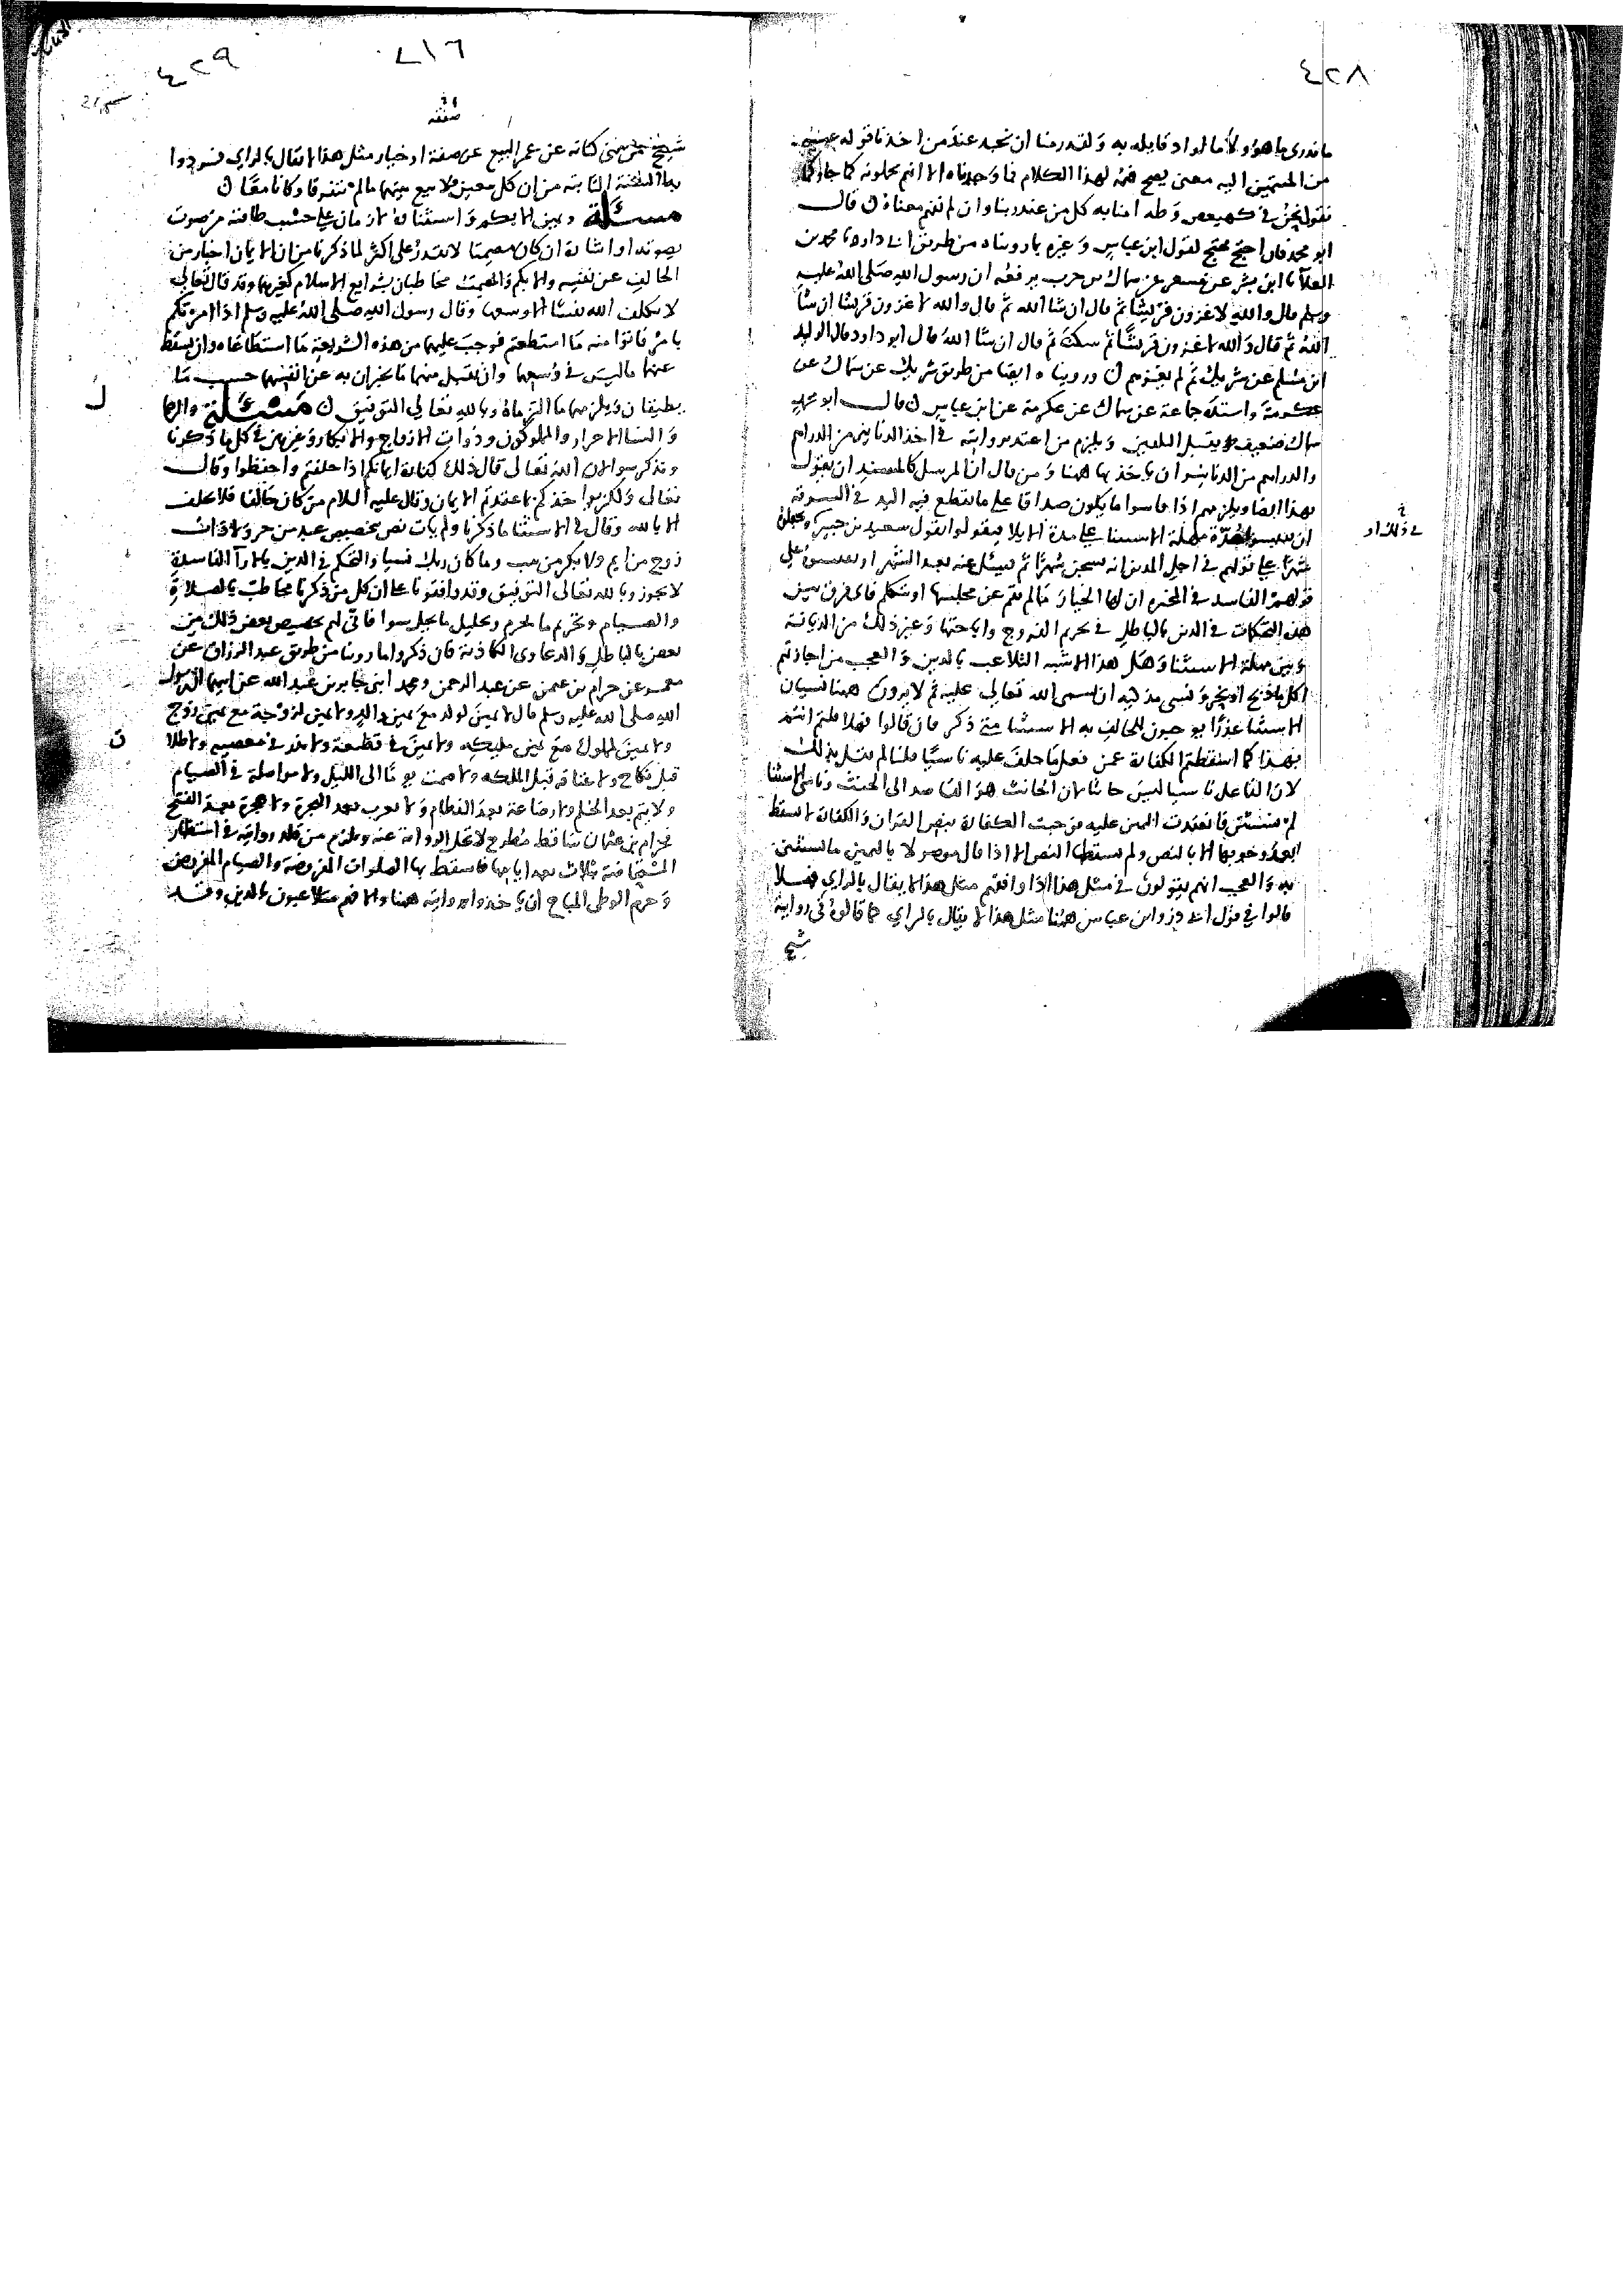 ٤٢٨
ما ندري ما هو ولا ما لواد قايله به ولقد رمنا ان نجد عند من اخذنا قوله عنه
من المنتمين اليه معنى يصح فهمه لهذا الكلام فما وجدناه الا انهم يحملونه كما جاز كما
نقول نحن في كهيعص وطه امنا به كل من عند ربنا وان لم نفهم معناه ن قال
ابو محمد فان احتج محتج لقول ابن عباس وغيره بما رويناه من طريق ابي داود نا محمد بن
العلآ نا ابن بشر عن مسعر عن سماك بن حرب يرفعه ان رسول الله صلى الله عليه
وسلم قال والله لاغزون قريشا ثم قال ان شا الله ثم قال والله لاغزون قريشا ان شا
الله ثم قال والله لاغزون قريشا ثم سكت ثم قال ان شا الله قال ابو داود قال الوليد
ابن مسلم عن شريك ثم لم يغزهم ن ورويناه ايضا من طريق شريك عن سماك عن
عكرمة واسنده جماعة عن سماك عن عكرمة عن ابن عباس ن قال ابو محمد
سماك ضعيف يقبل التلقين ويلزم من اعتد بروايته في اخذ الدنانير من الدراهم
والدراهم من الدنانير ان ياخذ بها ههنا ومن قال ان المرسل كالمسند ان يقول
بهذا ايضا ويلزمهم اذا قاسوا ما يكون صداقا على ما تقطع فيه اليد في السرقة
ان يقيسوا مدة مهلة الاستثنا على مدة الايلا فيقولوا بقول سعيد بن جبير
في ذلك او
شهرا على قولهم في اجل المدين انه يسجن شهرا ثم يسئل عنه بعد الشهر او على
قولهم الفاسد في المخيره ان لها الخيار ما لم تقم عن مجلسها او تتكلم فاي فرق بين
هذه التحكمات في الدين بالباطل في تحريم الفروج واباحتها وغير ذلك من الديانة
وبين مهلة الاستثنا وهل هذا الا شبه التلاعب بالدين والعجب من اجازتهم
اكل ما ذبح او نحر ونسى مذكيه ان يسمى الله تعالى عليه ثم لا يرون ههنا نسيان
الاستثنا عذرا يوجبون للحالف به الاستثنا متى ذكر فان قالوا فهلا قلتم انتم
بهذا كما اسقطتم الكفارة عمن فعل ما حلف عليه ناسيا قلنا لم نقل بذلك
لان الفاعل ناسيا ليس حانثا لان الحانث هو القاصد الى الحنث وناسي الاستثنا
لم يستثن فانعقدت اليمين عليه فوجبت الكفارة بنص القران والكفارة لا تسقط
بعد وجوبها الا بالنص ولم يسقطها النص الا اذا قال موصولا باليمين ما يستثنى
به والعجب انهم يقولون في مثل هذا اذا وافقهم مثل هذا لا يقال بالراي فهلا
قالوا في قول ابي ذر وابن عباس ههنا مثل هذا لا يقال بالراي كما قالوه في رواية
شيخ
٤٢٩
٧١٦
صفقه
شيخ من بني كنانه عن عمر البيع عن صفقة او خيار مثل هذا لا يقال بالراي فردوا
به السنة الثابته من ان كل بيعين فلا بيع بينهما ما لم يتفرقا وكانا معا ن
مسئلة ويمين الابكم واستثناؤه لازمان على حسب طاقته من صوت
يصوته او اشارة ان كان مصمتا لا يقدر على اكثر لما ذكرنا من ان الايمان اخبار من
الحالف عن نفسه والابكم والمصمت مخاطبان بشرايع الاسلام كغيرهما وقد قال تعالى
لا يكلف الله نفسا الا وسعها وقال رسول الله صلى الله عليه وسلم اذا امرتكم
بامر فاتوا منه ما استطعتم فوجب عليهما من هذه الشريعة ما استطاعاه وان يسقط
عنهما ما ليس في وسعهما وان يقبل منهما ما يخبران به عن انفسهما حسب ما
يطيقان ويلزمهما ما التزماه وبالله تعالى التوفيق ن مسئلة والرجال
والنسا الاحرار والمملوكون وذوات الازواج والابكار وغيرهن في كل ما ذكرنا
ونذكر سوا لان الله تعالى قال ذلك كفارة ايمانكم اذا حلفتم واحفظوا وقال
تعالى ولكن يواخذكم بما عقدتم الايمان وقال عليه السلام من كان حالفا فلا يحلف
الا بالله وقال في الاستثنا ما ذكرنا ولم يات نص بتخصيص عبد من حر ولا ذات
زوج من ايم ولا بكر من ثيب وما كان ربك نسيا والتحكم في الدين بالارآ الفاسدة
لا يجوز وبالله تعالى التوفيق وقد وافقونا على ان كل من ذكرنا مخاطب بالصلاة
والصيام وتحريم ما يحرم وتحليل ما يحل سوا فانى لهم تخصيص بعض ذلك من
بعض بالباطل والدعاوى الكاذبة فان ذكروا ما روينا من طريق عبد الرزاق عن
معمر عن حرام بن عثمن عن عبد الرحمن ومحمد ابني جابر بن عبد الله عن ابيهما ان رسول
الله صلى الله عليه وسلم قال لا يمين لولد مع يمين والد ولا يمين لزوجة مع يمين زوج
ولا يمين لمملوك مع يمين مليكه ولا يمين في قطيعة ولا نذر في معصيه ولا طلاق
قبل نكاح ولا عتاقه قبل الملكه ولا صمت يوما الى الليل ولا مواصلة في الصيام
ولا يتم بعد الحلم ولا رضاعة بعد الفطام ولا تعرب بعد الهجرة ولا هجرة بعد الفتح
فحرام بن عثمان ساقط مطرح لا تحل الرواية عنه ويلزم من قلد روايته في استظهار
المستحاضة بثلاث بعد ايامها فاسقط بها الصلوات المفروضة والصيام المفروض
وحرم الوطى المباح ان ياخذوا بروايته ههنا والا فهم متلاعبون بالدين وقد